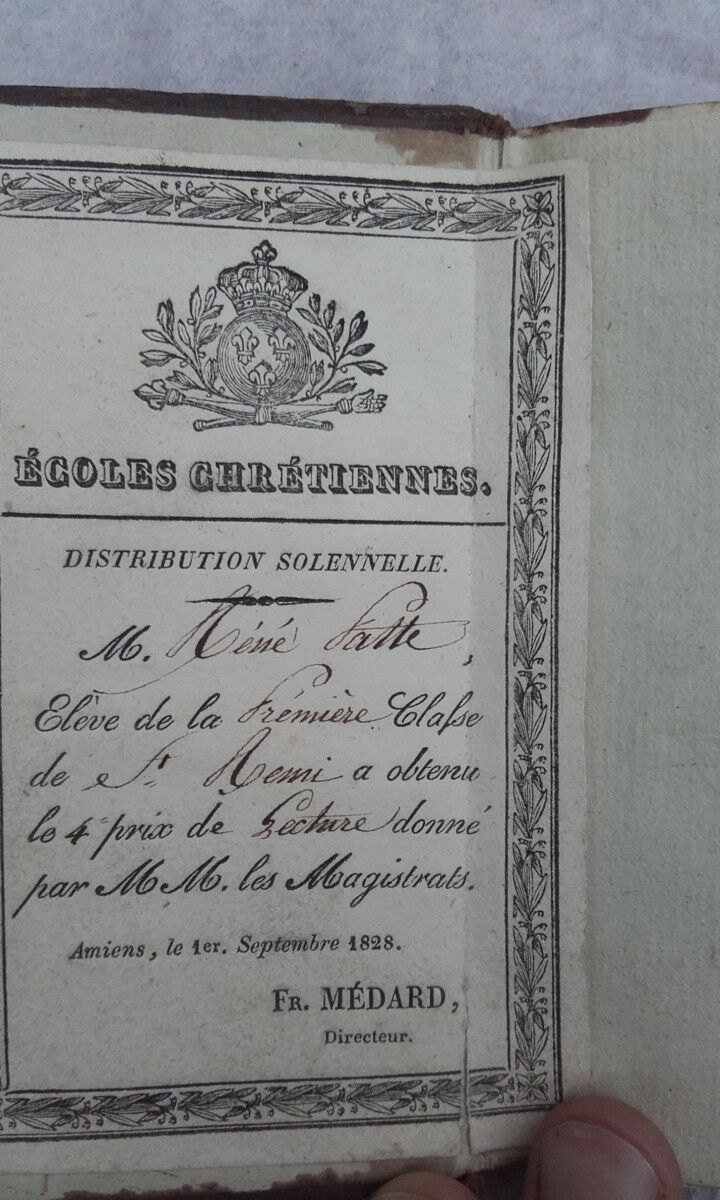 ÉCOLES CHRÉTIENNES.
DISTRIBUTION SOLENNELLE.
M. Réné Patte,
Elève de la Prémière Claſse
de St. Remi a obtenu
le 4e prix de Lecture donné
par M M. les Magistrats.
Amiens, le 1er. Septembre 1828.
FR. MÉDARD,
Directeur.